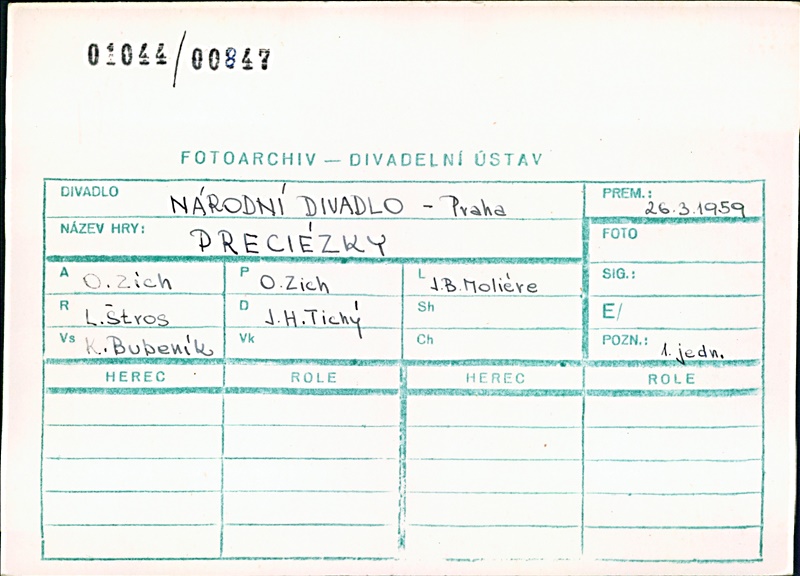 01044/00847
FOTOARCHIV — DIVADELNÍ ÚSTAV
DIVADLO NÁRODNÍ DIVADLO - Praha
PREM.: 26.3.1959
NÁZEV HRY: PRECIÉZKY
FOTO
A O. Zich P O. Zich L J.B. Moliére
SIG.:
R L. Štros D J.H. Tichý Sh
E/
Vs K. Bubeník Vk Ch
POZN.: 1. jedn.
HEREC ROLE HEREC ROLE